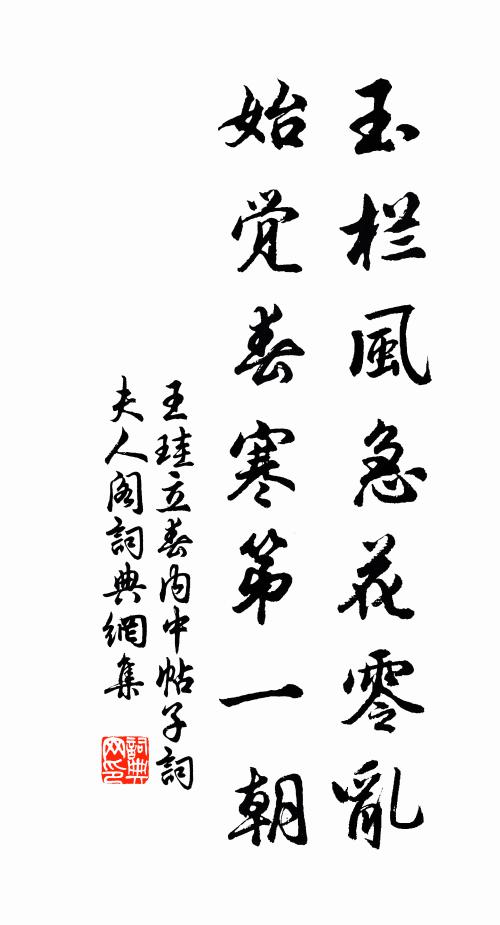 玉栏風急花零亂
始觉春寒第一朝
王珪立春内中帖子詞
夫人阁詞典網集
詞典
网印